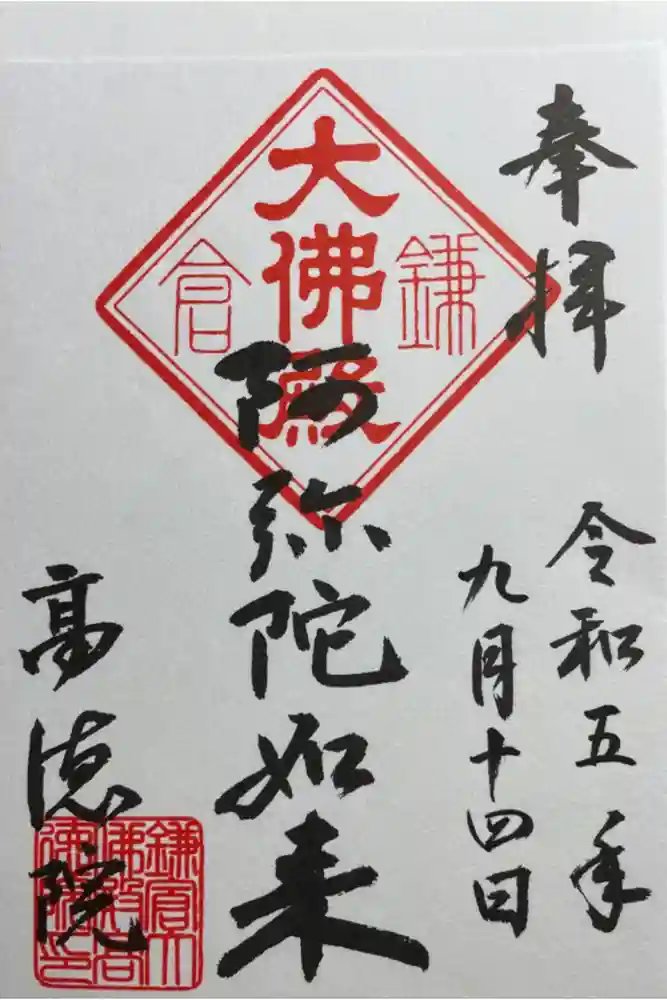 奉拝
令和五年
九月十四日
鎌倉
大佛殿
阿弥陀如来
高徳院
鎌倉大
佛殿高
徳院印